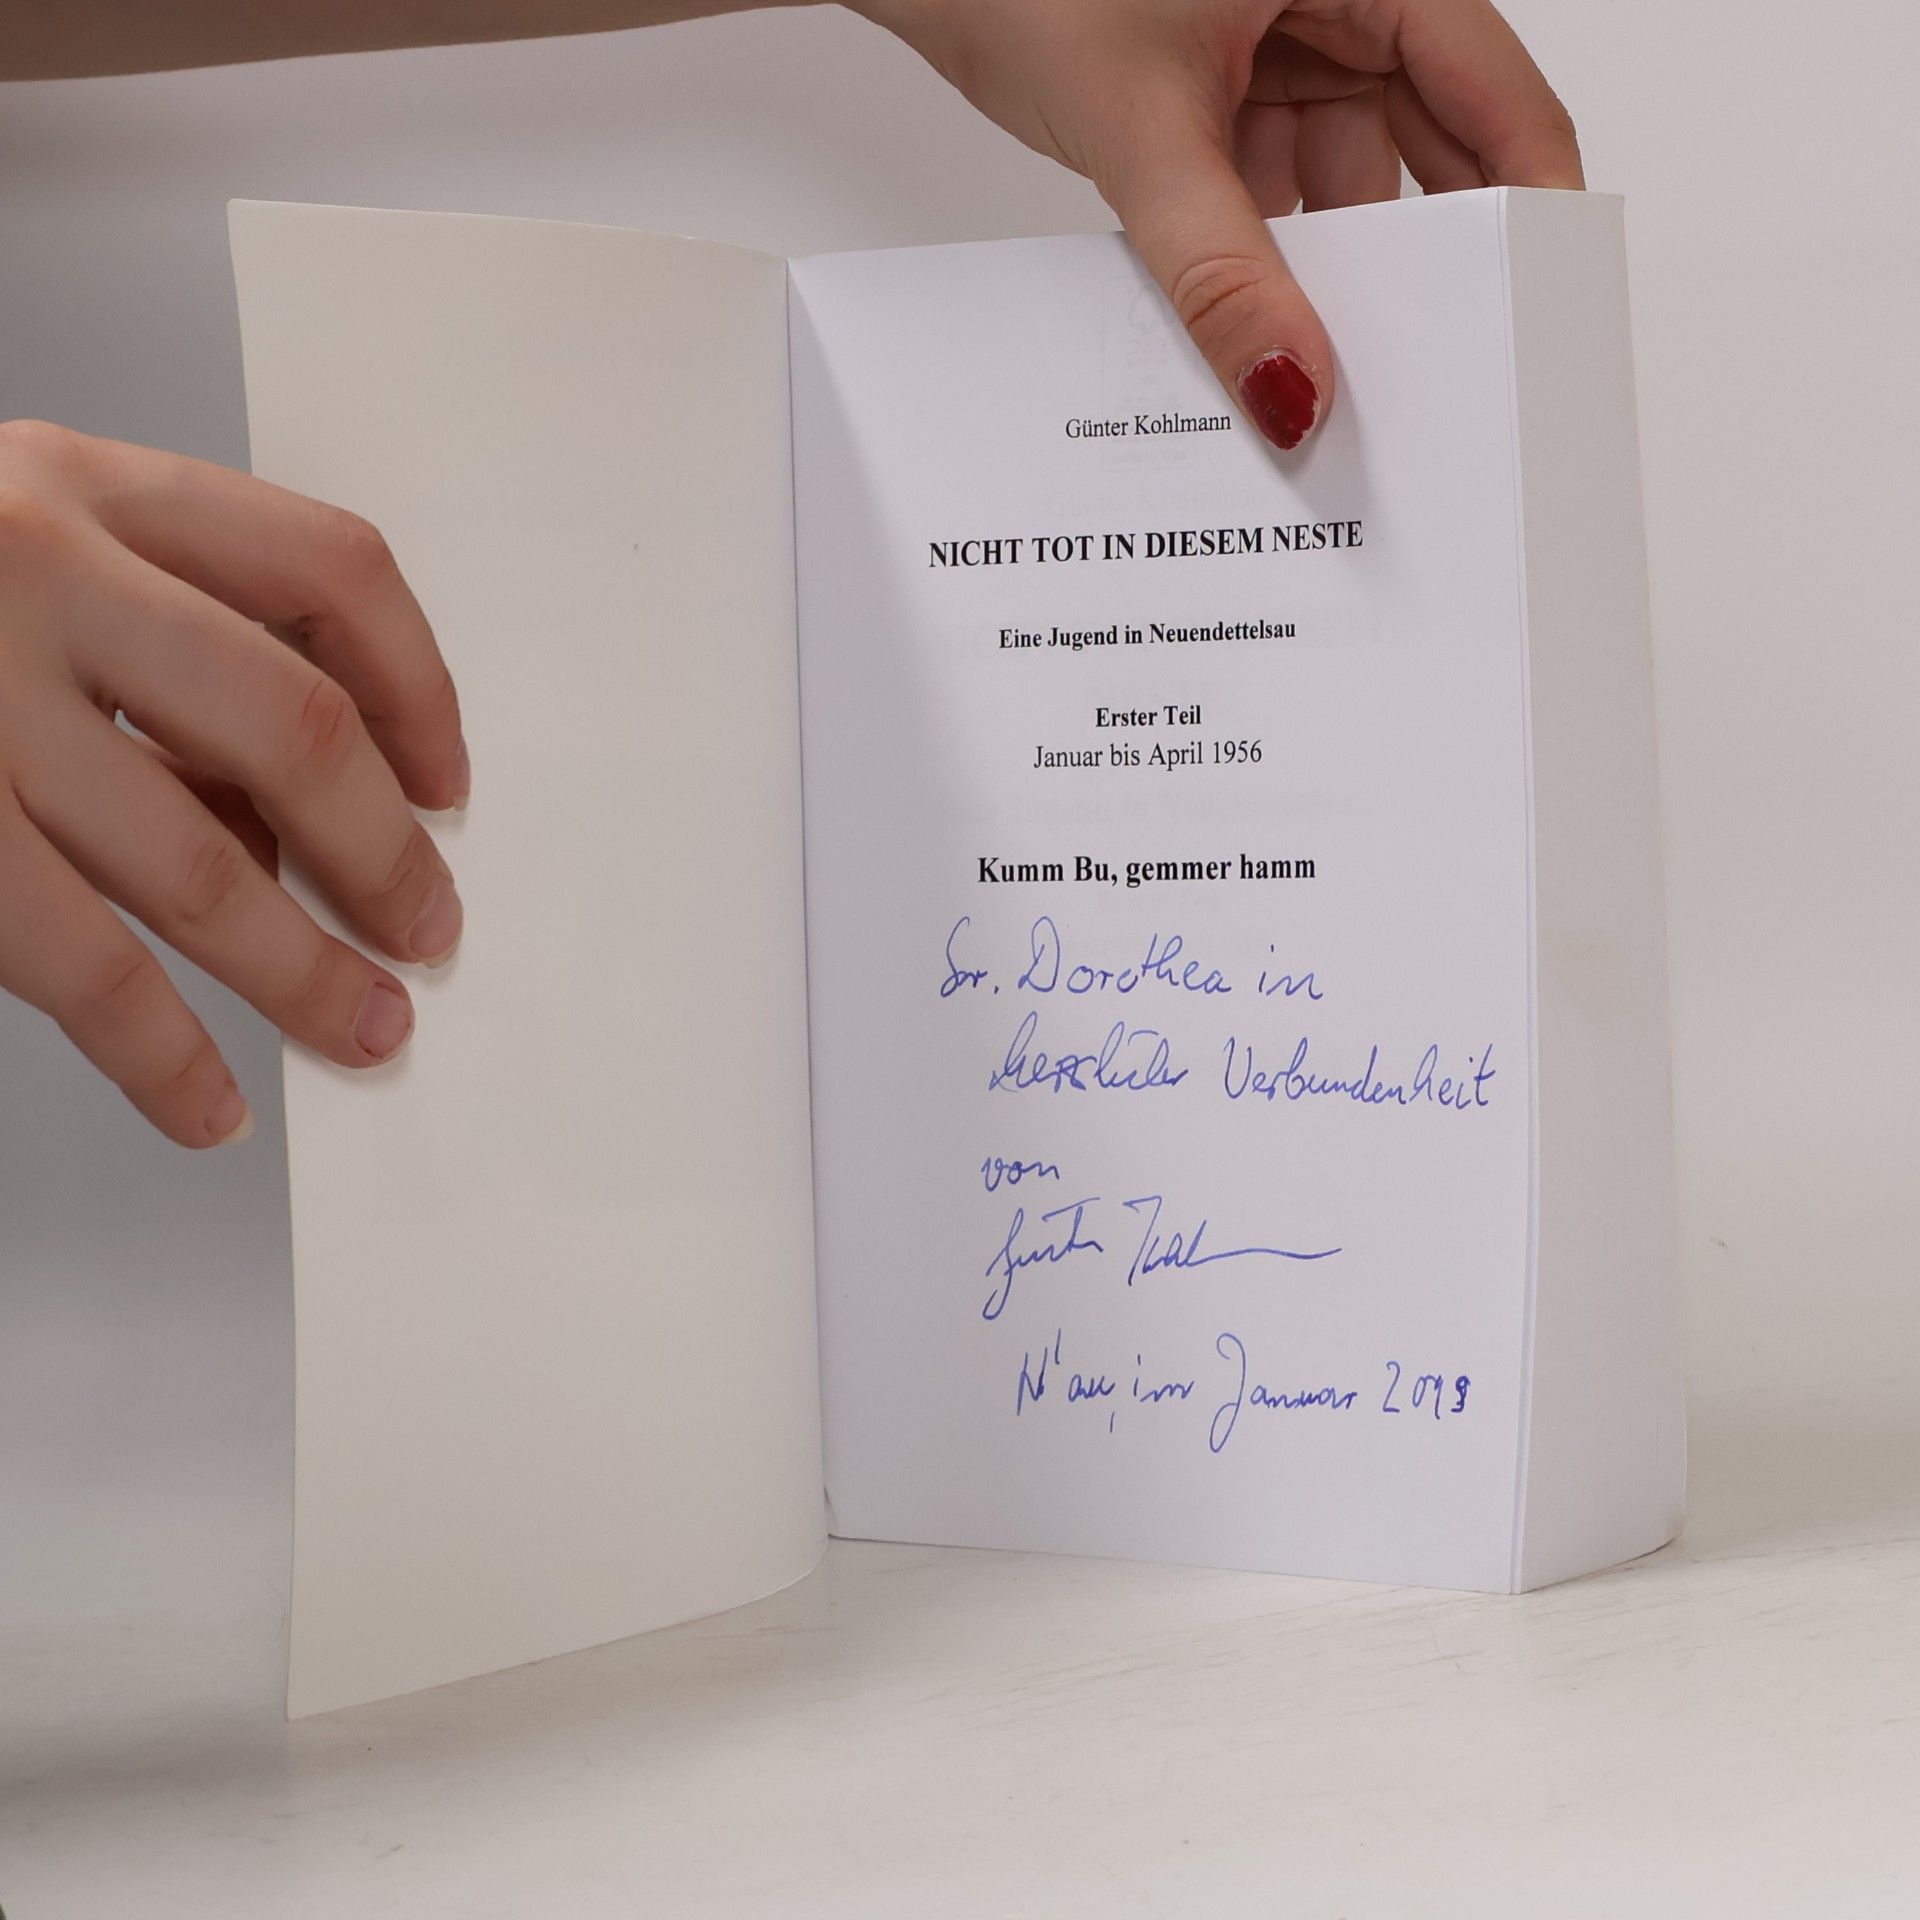 Günter Kohlmann
NICHT TOT IN DIESEM NESTE
Eine Jugend in Neuendettelsau
Erster Teil
Januar bis April 1956
Kumm Bu, gemmer hamm
Sr. Dorothea in
herzlicher Verbundenheit
von
N'au, im Januar 2019